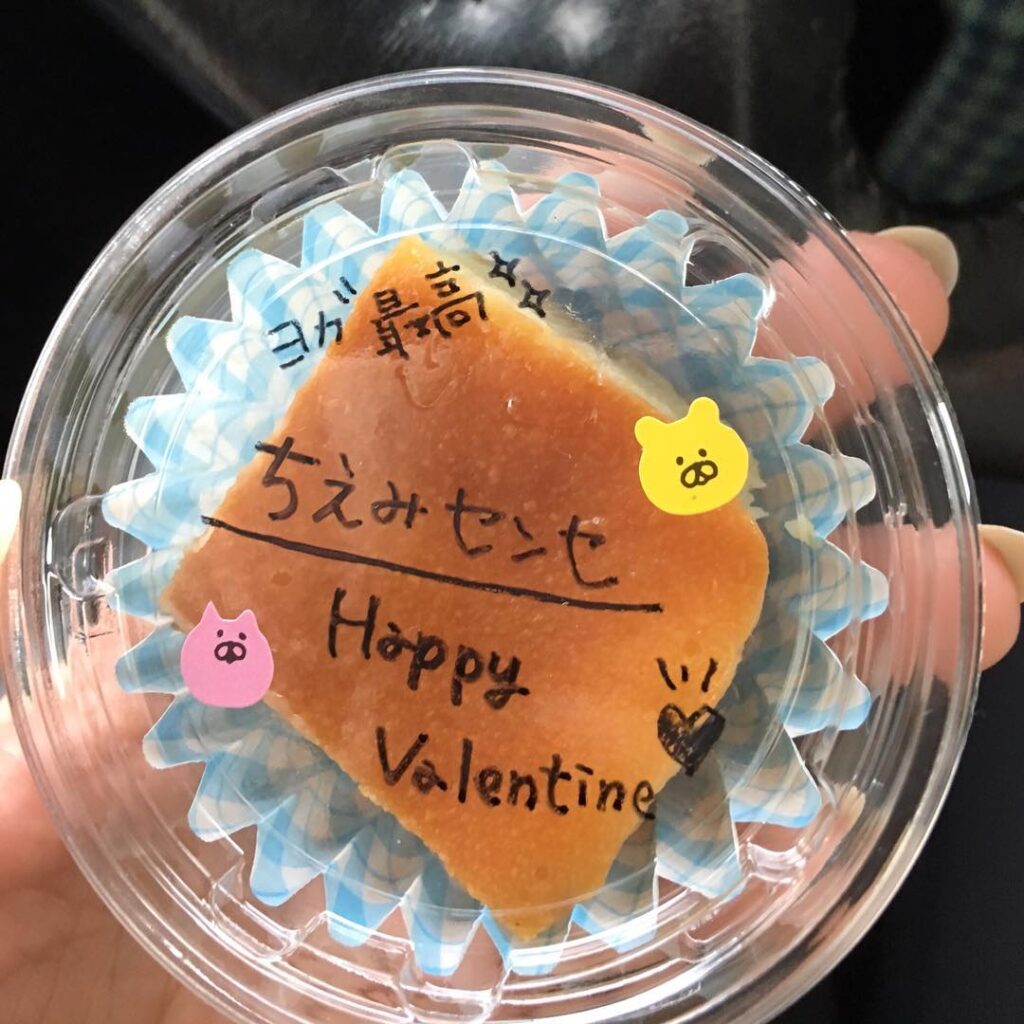 ヨガ最高
ちえみセンセ
Happy
Valentine